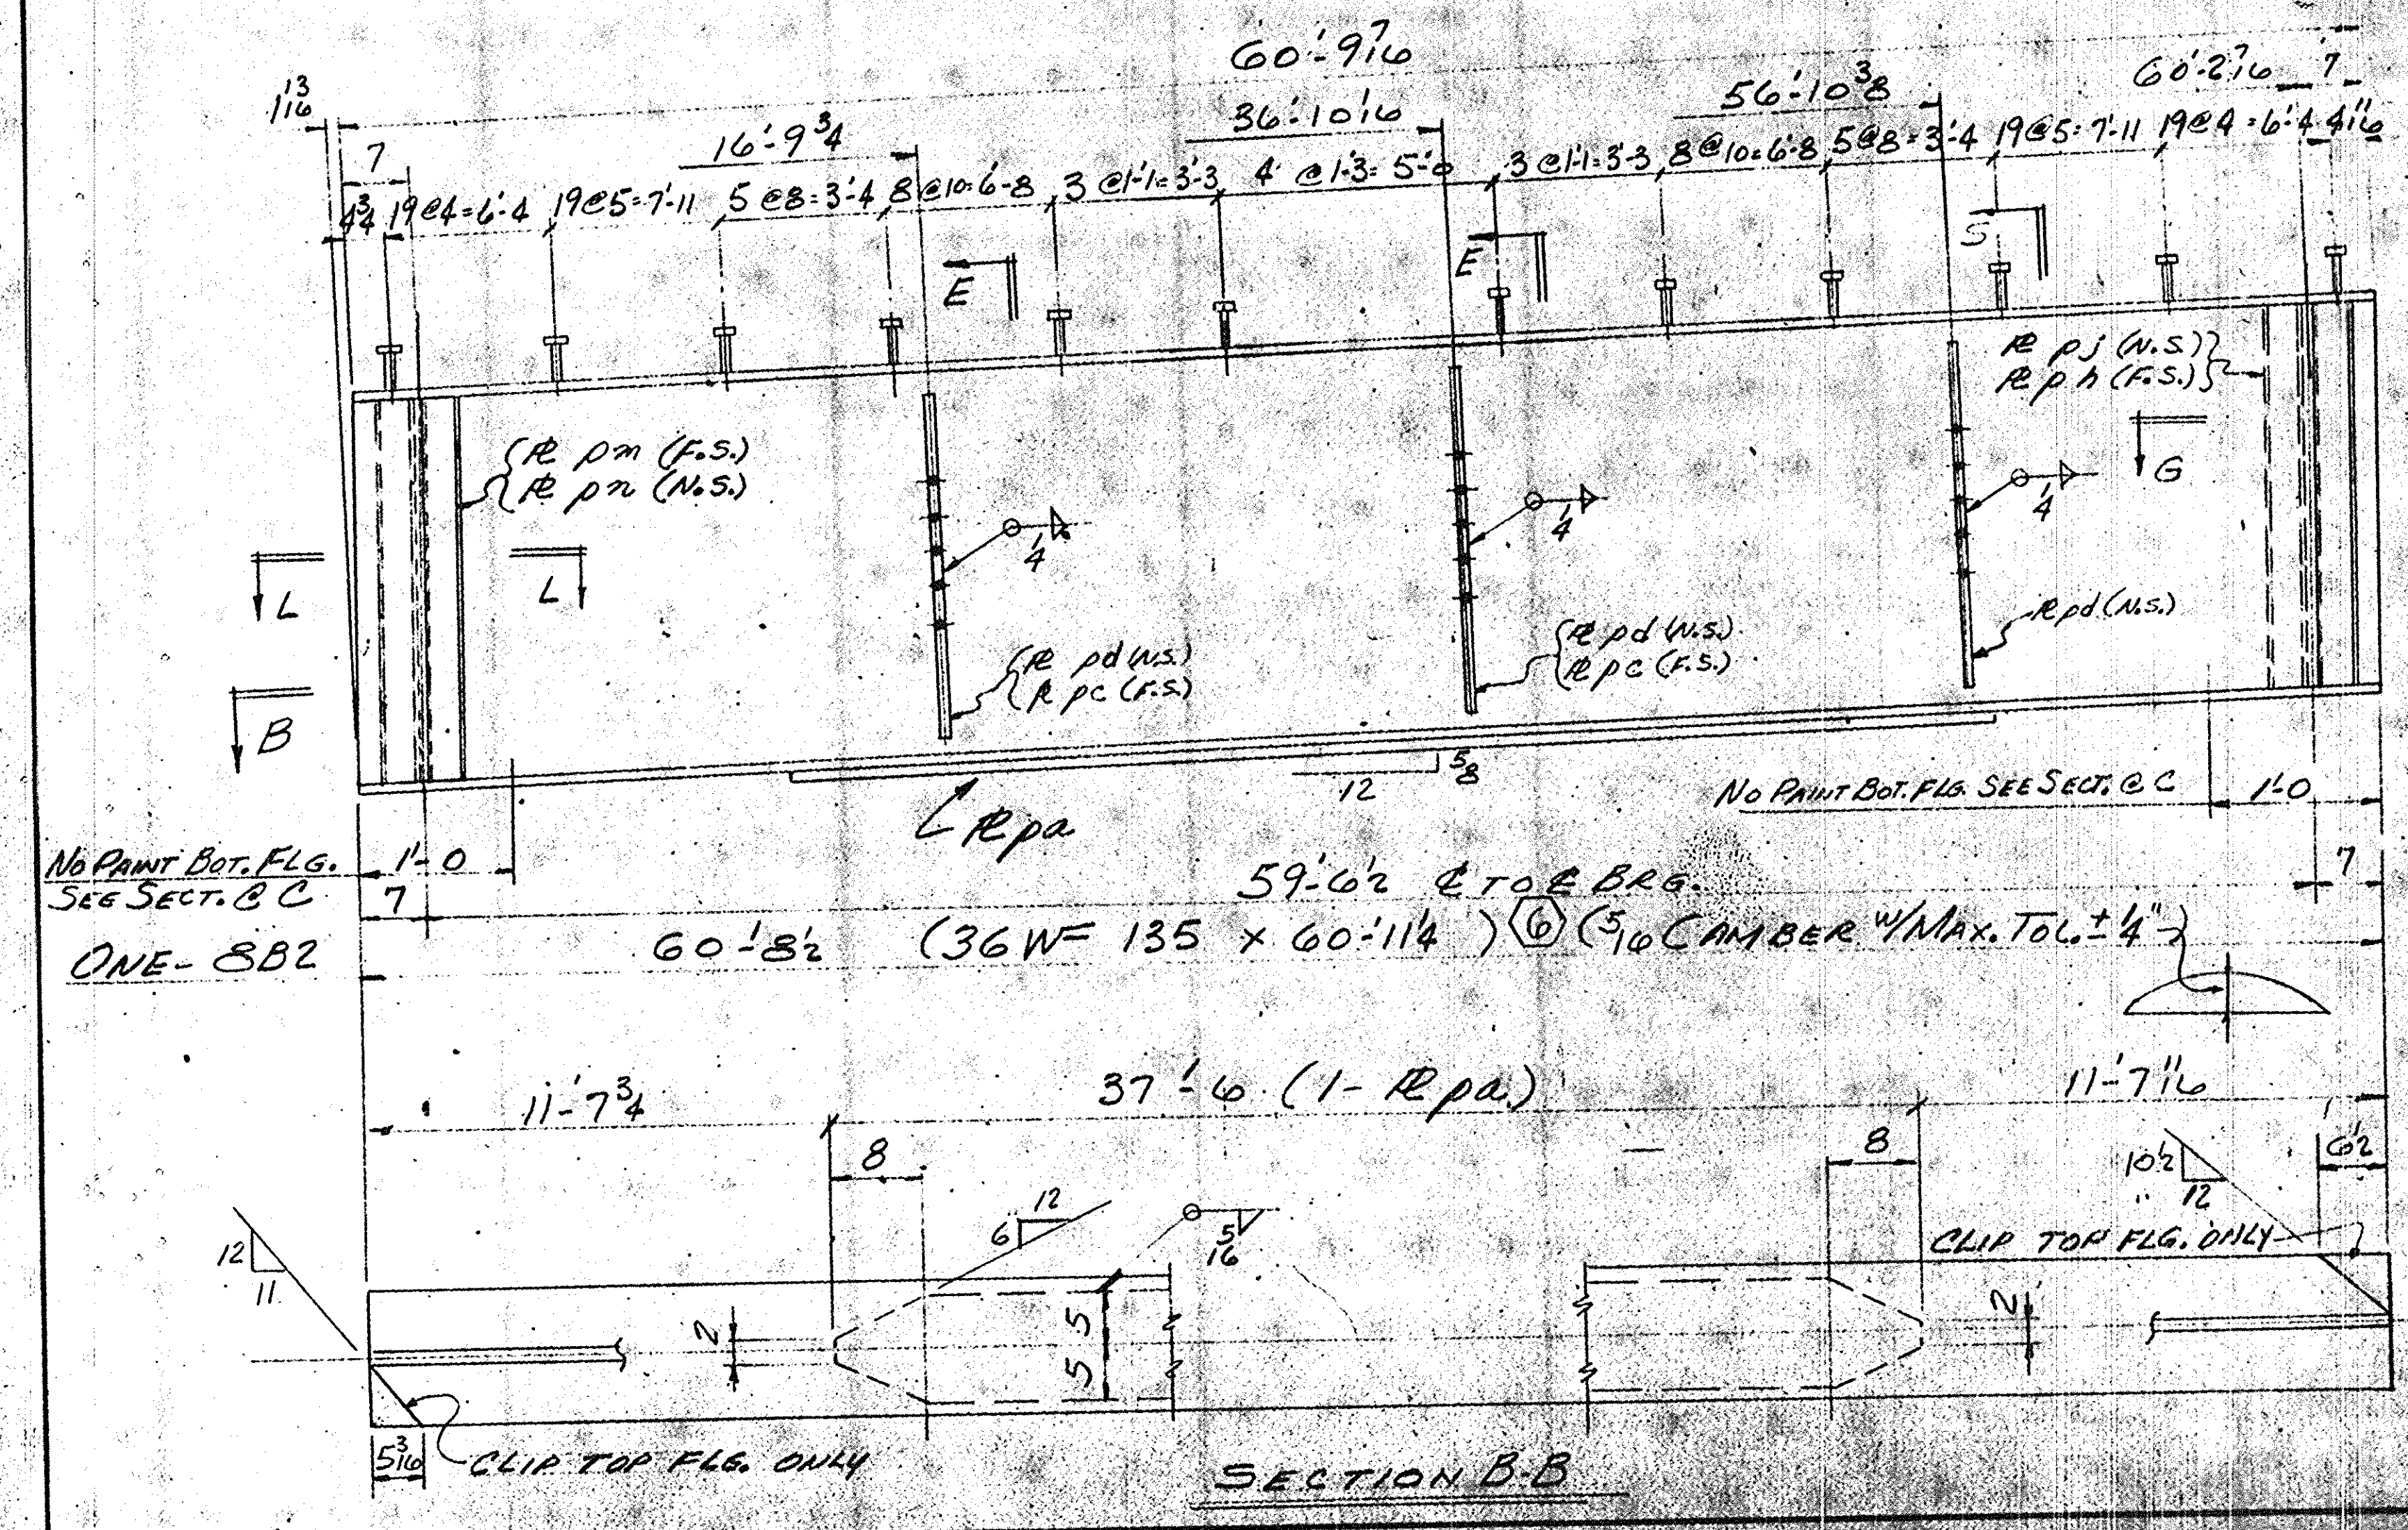 60'-9 7/16
1 13/16
7
16'-9 3/4
36'-10 1/16
56'-10 3/8
60'-2 7/16
7
4 3/4 19@4=6'-4 19@5=7'-11 5@8=3'-4 8@10=6'-8 3@1'-1=3'-3 4@1'-3=5'-0 3@1'-1=3'-3 8@10=6'-8 5@8=3'-4 19@5=7'-11 19@4=6'-4 4 11/16
E
E
S
PL pj (N.S.)
PL ph (F.S.)
PL pm (F.S.)
PL pn (N.S.)
G
1/4
1/4
1/4
L
L
PL pd (N.S.)
PL pc (F.S.)
PL pd (N.S.)
PL pc (F.S.)
PL pd (N.S.)
B
12
5/8
PL pa
NO PAINT BOT. FLG. SEE SECT. @ C
1'-0
NO PAINT BOT. FLG.
SEE SECT. @ C
1'-0
7
59'-6 1/2 ℄ TO ℄ BRG.
7
ONE - 8B2
60'-8 1/2 (36 WF 135 x 60'-11 1/4) 6 (5/16 CAMBER W/MAX. TOL. ± 1/4")
11'-7 3/4
37'-6 (1- PL pa.)
11'-7 11/16
8
8
6 1/2
12
11
6
12
5/16
10 1/2
12
CLIP TOP FLG. ONLY
2
5
5
2
5 3/16
CLIP TOP FLG. ONLY
SECTION B-B